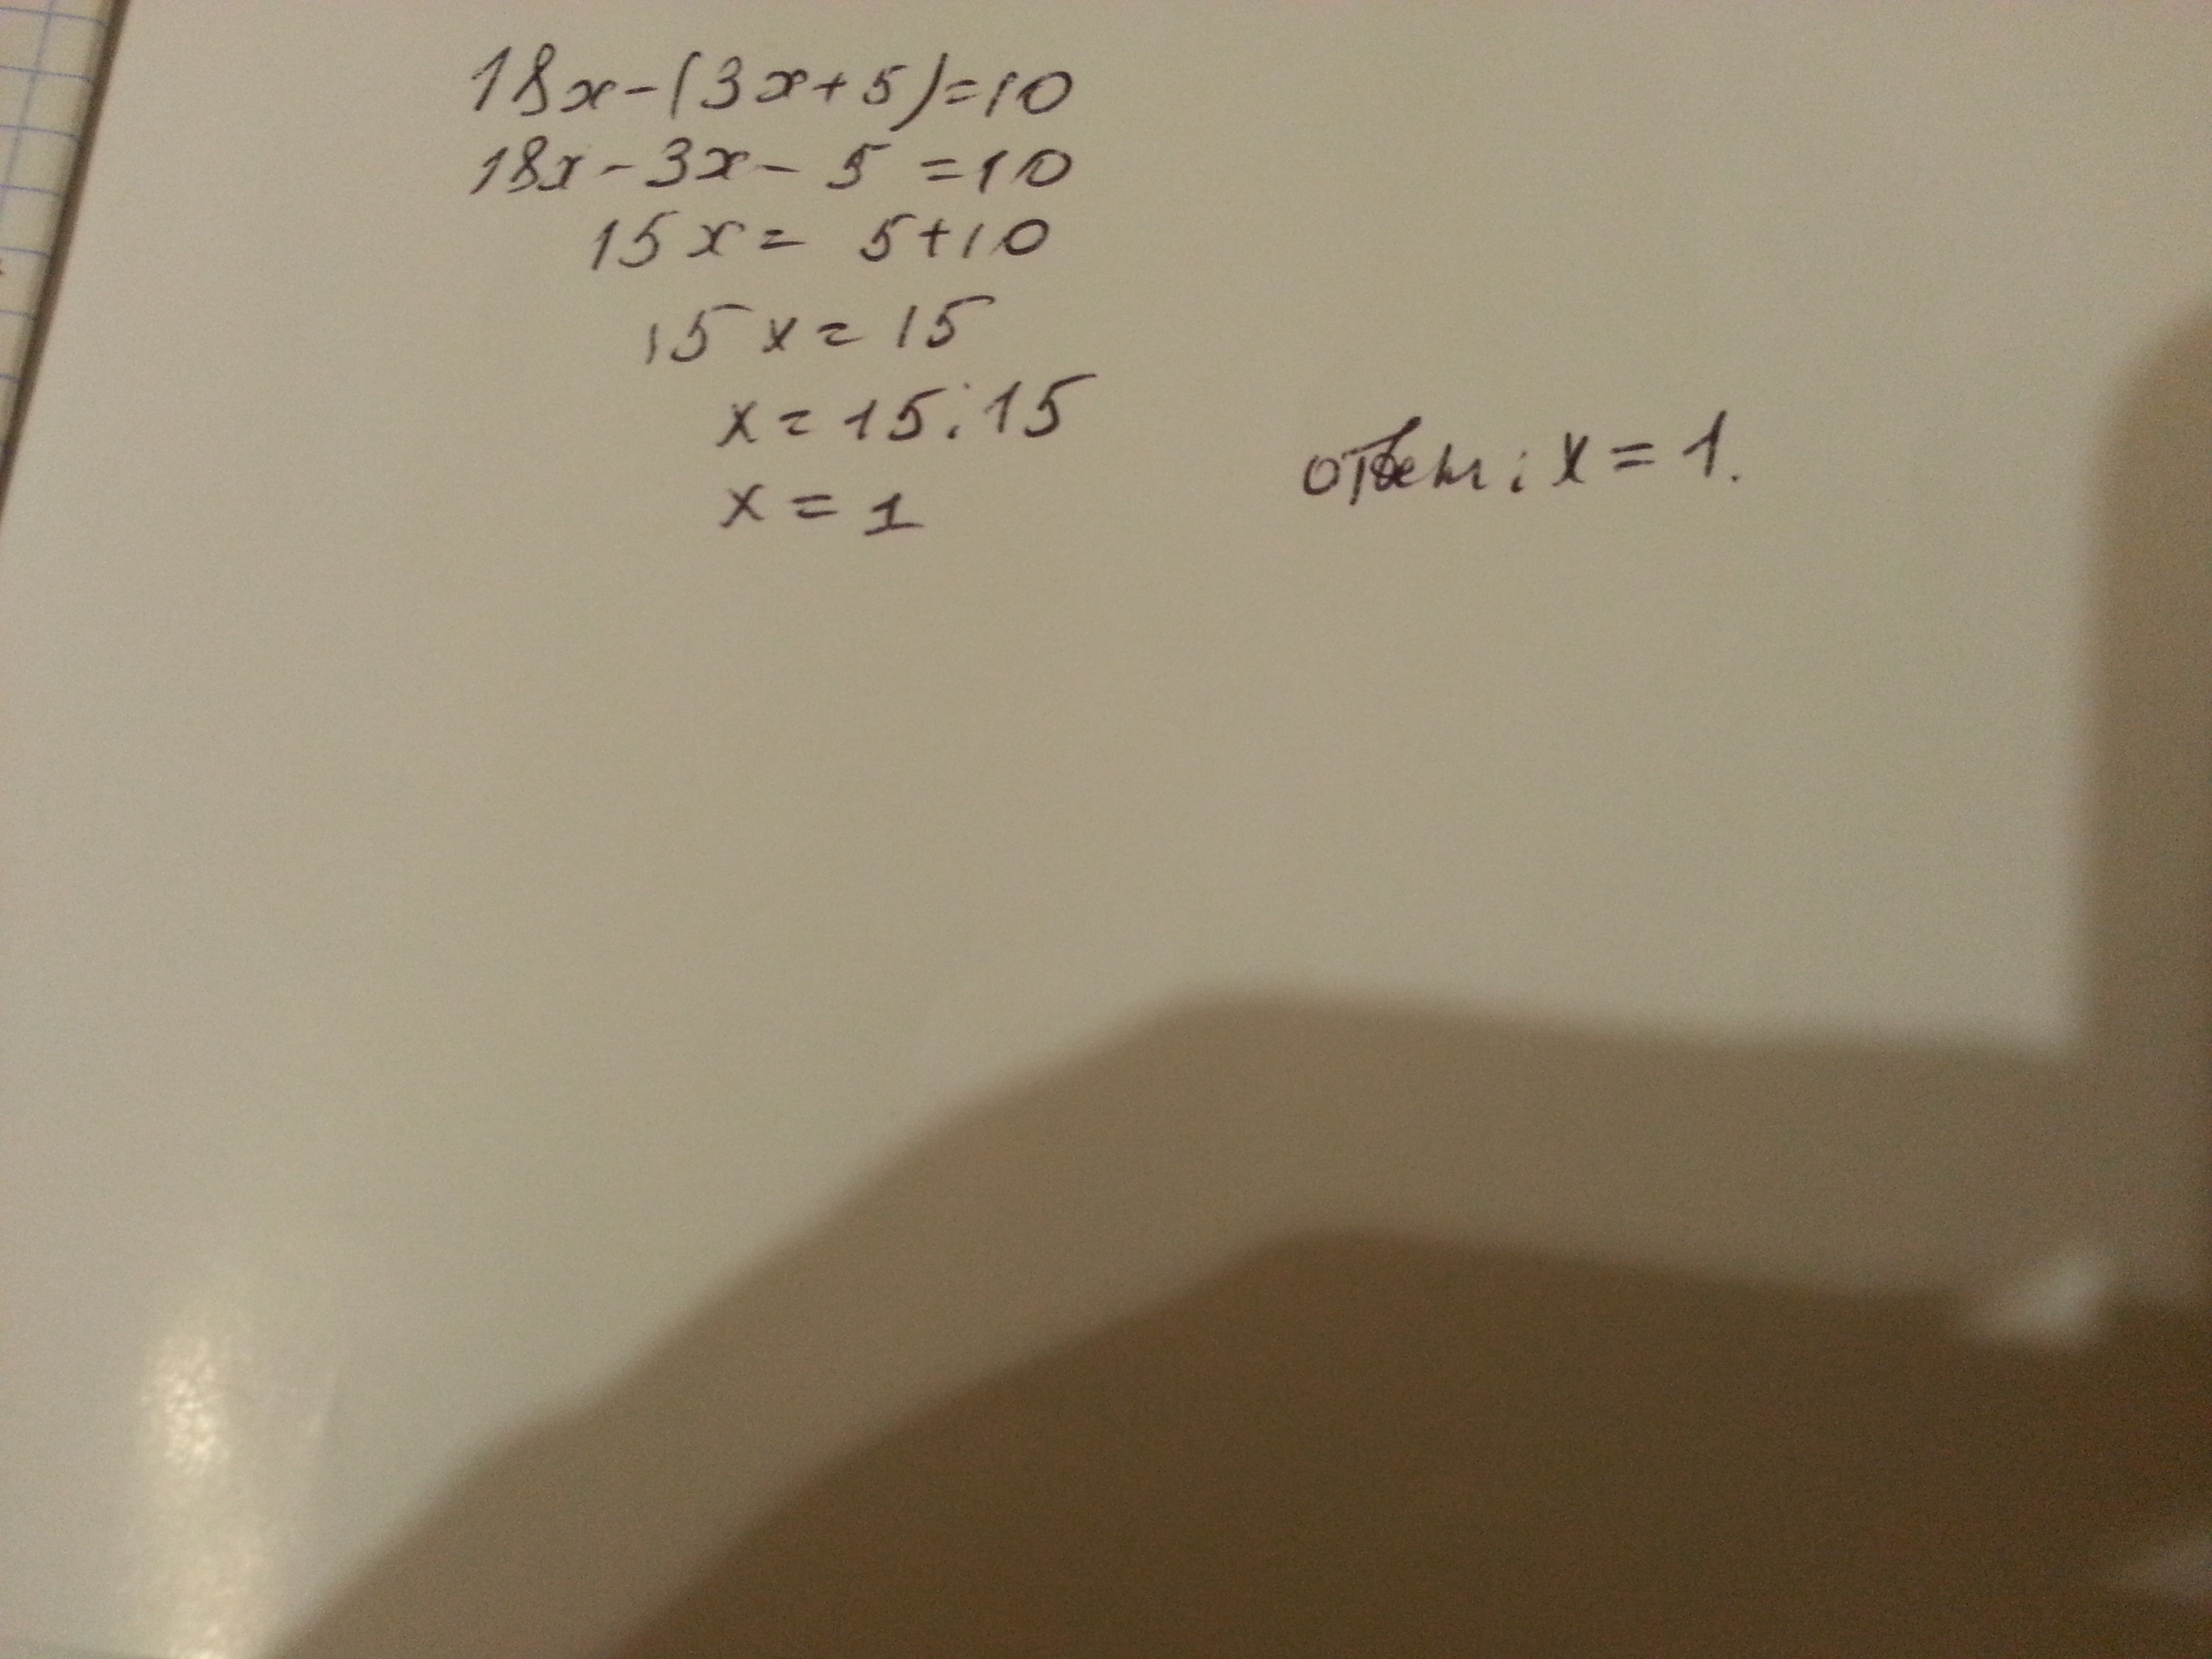 18x-(3x+5)=10
18x-3x-5=10
15x=5+10
15x=15
x=15:15
x=1
ответ: x=1.